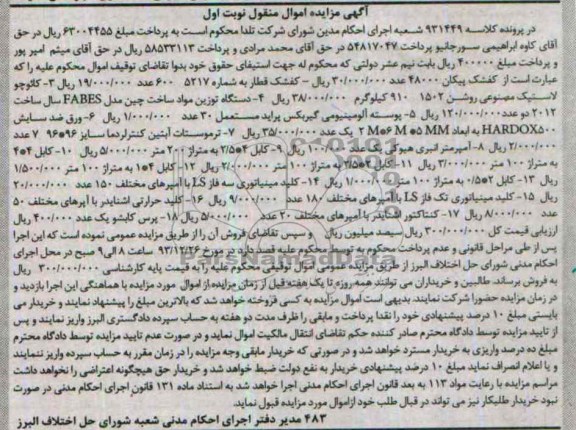 آگهی مزایده اموال منقول نوبت اول
در پرونده کلاسه ۹۳۱۴۴۹ شعبه اجرای احکام مدین شورای شرکت تلدا محکوم است به پرداخت مبلغ ۶۳۰۰۴۴۵۵ ریال در حق
آقای کاوه ابراهیمی سورجانیو پرداخت ۵۴۸۱۷۰۴۷ در حق آقای محمد مرادی و پرداخت ۵۸۵۳۳۱۱۳ ریال در حق آقای میثم امیر پور
و پرداخت مبلغ ۴۰۰۰۰۰ ریال بابت نیم عشر دولتی که محکوم له جهت استیفای حقوق خود بدوا تقاضای توقیف اموال محکوم علیه را که
عبارت است از کفشک پیکان ۴۸۰۰۰ عدد ۳۰/۰۰۰/۰۰۰ ریال – کفشک قطار به شماره ۵۲۱۷ ۶۰۰ عدد ۱۹/۰۰۰/۰۰۰ ریال ۳- کائوچو
لاستیک مصنوعی روشن ۱۵۰۲ ۹۱۰ کیلوگرم ۳۸/۰۰۰/۰۰۰ ریال ۴- دستگاه توزین مواد ساخت چین مدل FABES سال ساخت
۲۰۱۲ دو عدد ۱۲۰/۰۰۰/۰۰۰ ریال ۵- پوسته آلومینیومی گیربکس پراید مستعمل ۳۰ عدد ۱/۰۰۰/۰۰۰ ریال ۶- ورق ضد سایش
HARDOX۵۰۰ به ابعاد ۲ M*۶ M *۵ MM یک عدد ۳۵/۰۰۰/۰۰۰ ریال ۷- ترموستات آبتین کنترلردما سایز ۹۶*۹۶ ۷ عدد
۲/۰۰۰/۰۰۰ ریال ۸- آمپرمتر انبری هیوکی یک عدد ۱/۰۰۰/۰۰۰ ریال ۹- کابل ۲/۵*۴ به متراژ ۲۰۰ متر ۵/۰۰۰/۰۰۰ ریال ۱۰- کابل ۴*۴
به متراژ ۱۰۰ متر ۳/۰۰۰/۰۰۰ ریال ۱۱- کابل ۲/۵*۳ به متراژ ۱۰۰ متر ۲/۰۰۰/۰۰۰ ریال ۱۲- کابل ۴*۱ به متراژ ۱۰۰ متر ۱/۵۰۰/۰۰۰
ریال ۱۳- کابل ۰/۵*۲ به متراژ ۱۰۰ متر ۱/۰۰۰/۰۰۰ ریال ۱۴- کلید مینیاتوری سه فاز LS با آمپرهای مختلف ۱۵۰ عدد ۲۰/۰۰۰/۰۰۰
ریال ۱۵- کلید مینیاتوری تک فاز LS با آمپرهای مختلف ۱۸۰ عدد ۹/۰۰۰/۰۰۰ ریال ۱۶- کلید حرارتی اشنایدر با آمپرهای مختلف ۵۰
عدد ۸/۰۰۰/۰۰۰ ریال ۱۷- کنتاکتور اشنایدر با آمپرهای مختلف ۲۰ عدد ۵/۰۰۰/۰۰۰ ریال ۱۸- پرس کابشو یک عدد ۴۰۰/۰۰۰ ریال
ارزیابی قیمت کل ۳۰۰/۰۰۰/۰۰۰ ریال سیصد میلیون ریال و سپس تقاضای فروش آن را از طریق مزایده عمومی نموده است که این اجرا
پس از طی مراحل قانونی و عدم پرداخت محکوم به توسط محکوم علیه قصد دارد در مورخ ۹۳/۱۲/۲۶ ساعت ۸ الی ۹ صبح در محل اجرای
احکام مدنی شورای حل اختلاف البرز از طریق مزایده عمومی اموال توقیفی محکوم علیه را به قیمت پایه کارشناسی ۳۰۰/۰۰۰/۰۰۰ ریال
به فروش برساند. طالبین و خریداران می توانند همه روزه تا یک هفته قبل از زمان مزایده از اموال مورد مزایده با هماهنگی این اجرا بازدید و
در زمان مزایده حضورا شرکت نمایند، بدیهی است اموال مزایده به کسی فروخته خواهد شد که بالاترین مبلغ را پیشنهاد نمایند و خریدار می
بایستی مبلغ ۱۰ درصد پیشنهادی خود را نقدا پرداخت و مابقی را ظرف مدت دو هفته به حساب سپرده دادگستری البرز واریز نمایند و پس
از تایید مزایده توسط دادگاه محترم صادر کننده حکم تقاضای انتقال مالکیت اموال نماید و در صورت عدم تایید مزایده توسط دادگاه محترم
مبلغ ده درصد واریزی به خریدار مسترد خواهد شد و در صورتی که خریدار مابقی وجه مزایده را در زمان مقرر به حساب سپرده واریز ننمایند
و یا اعلام انصراف نماید مبلغ ۱۰ درصد پیشنهادی خریدار به نفع دولت ضبط خواهد شد و خریدار حق هیچگونه اعتراضی را نخواهد داشت
مراسم مزایده با رعایت مواد ۱۱۳ به بعد قانون اجرای احکام مدنی اجرا خواهد شد به استناد ماده ۱۳۱ قانون اجرای احکام مدنی در صورت
نبود خریدار طلبکار نیز می تواند در قبال طلب خود ازاموال مورد مزایده قبول نماید.
۴۸۳ مدیر دفتر اجرای احکام مدنی شعبه شورای حل اختلاف البرز